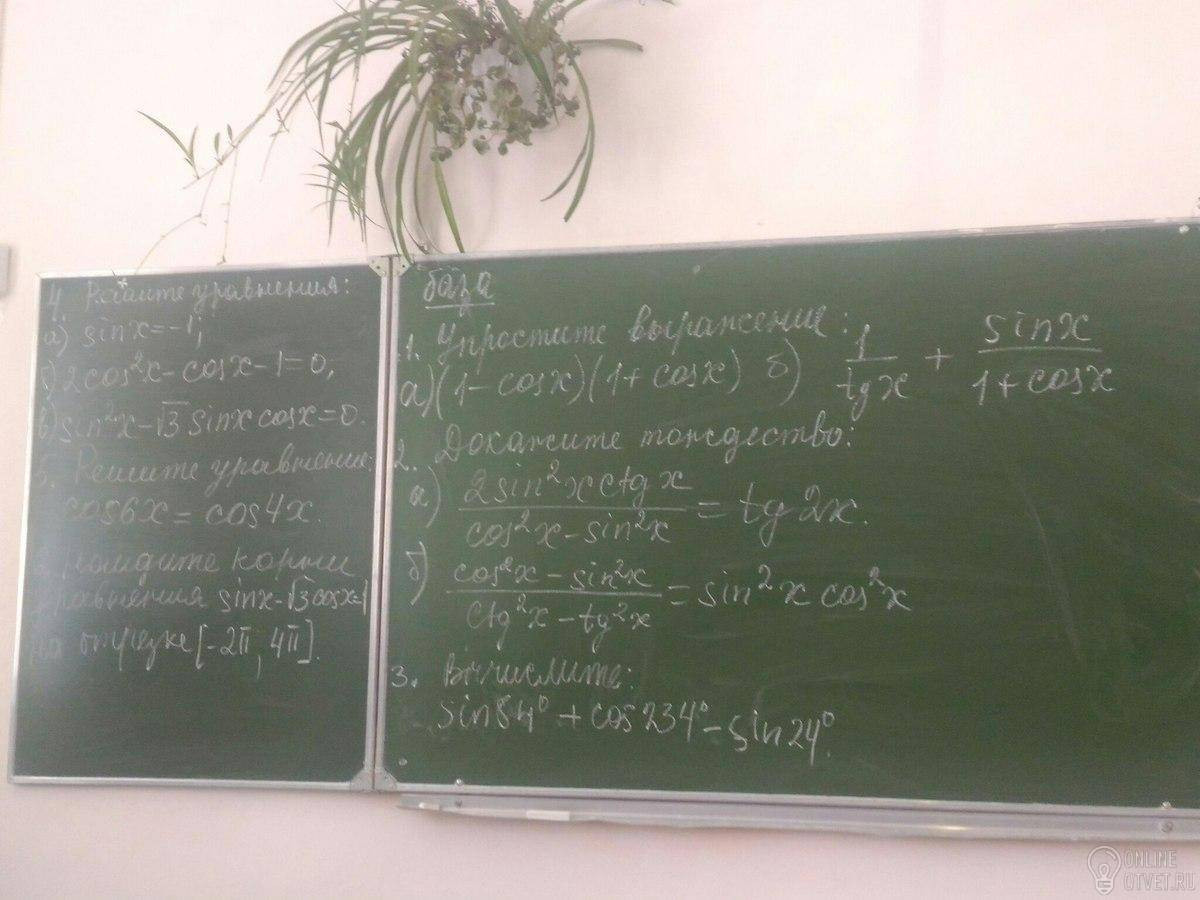 4. Решите уравнения:
а) sinx=-1;
б) 2cos²x-cosx-1=0,
в) sin²x-√3 sinx cosx=0.
5. Решите уравнение:
cos6x = cos4x.
Найдите корни
уравнения sinx-√3cosx=1
на отрезке [-2π, 4π].
база
1. Упростите выражение:
а) (1-cosx)(1+cosx) б) 1/tgx + sinx/(1+cosx)
2. Докажите тождество:
а) 2sin²x ctgx/(cos²x-sin²x) = tg2x.
б) (cos²x-sin²x)/(ctg²x-tg²x) = sin²x cos²x
3. Вычислите:
sin84°+cos234°-sin24°.
ONLINE
OTVET.RU